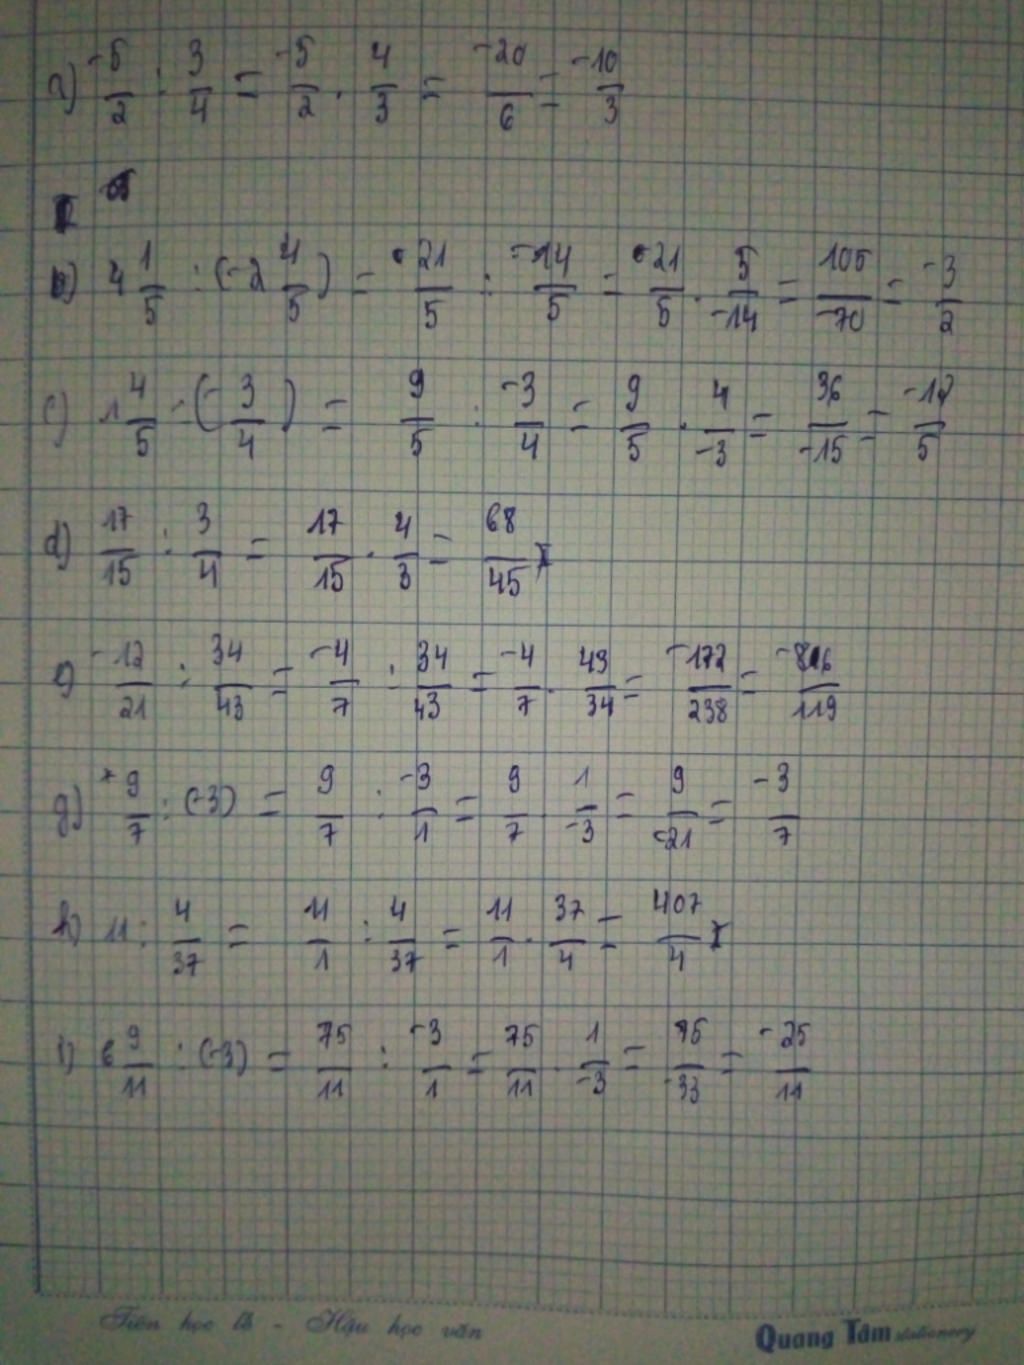 a) -5/2 : 3/4 = -5/2 . 4/3 = -20/6 = -10/3
b) 4 1/5 : (-2 4/5) = 21/5 : -14/5 = 21/5 . 5/-14 = 105/-70 = -3/2
c) 1 4/5 : (-3/4) = 9/5 : -3/4 = 9/5 . 4/-3 = 36/-15 = -12/5
d) 17/15 : 3/4 = 17/15 . 4/3 = 68/45
e) -12/21 : 34/43 = -4/7 : 34/43 = -4/7 . 43/34 = -172/238 = -86/119
g) 9/7 : (-3) = 9/7 : -3/1 = 9/7 . 1/-3 = 9/-21 = -3/7
h) 11 : 4/37 = 11/1 : 4/37 = 11/1 . 37/4 = 407/4
i) 6 9/11 : (-3) = 75/11 : -3/1 = 75/11 . 1/-3 = 75/-33 = -25/11
Tiên học lễ - Hậu học văn
Quang Tâm stationery